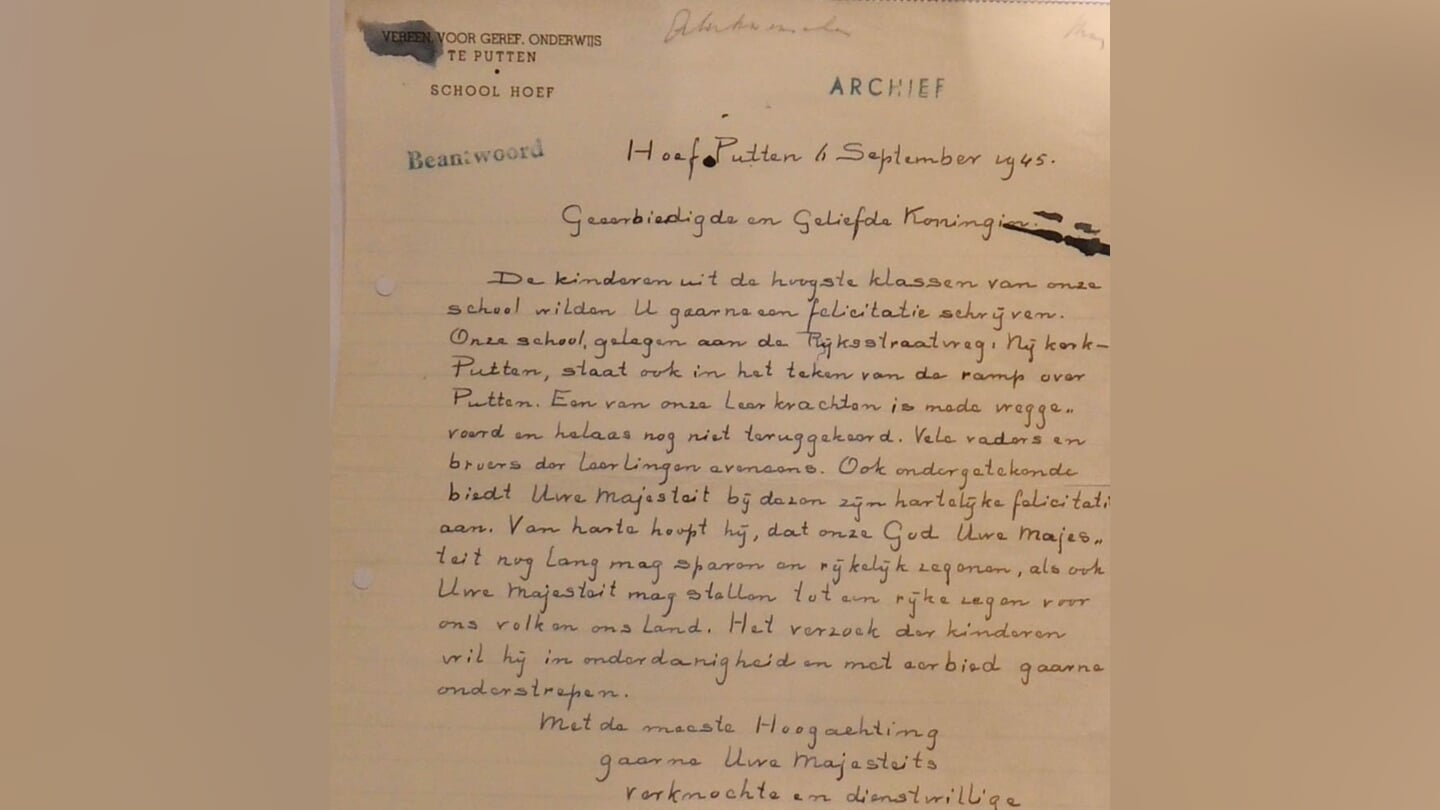 VEREEN. VOOR GEREF. ONDERWIJS
TE PUTTEN
SCHOOL HOEF
ARCHIEF
Beantwoord
Hoef Putten 6 September 1945.
Geeerbiedigde en Geliefde Koningin.
De kinderen uit de hoogste klassen van onze
school wilden U gaarne een felicitatie schrijven.
Onze school, gelegen aan de Rijksstraatweg, Nijkerk-
Putten, staat ook in het teken van de ramp over
Putten. Een van onze Leerkrachten is mede wegge„
voerd en helaas nog niet teruggekeerd. Vele vaders en
broers der Leerlingen eveneens. Ook ondergetekende
biedt Uwe Majesteit bij dezen zijn hartelijke felicitati
aan. Van harte hoopt hij, dat onze God Uwe Majes„
teit nog lang mag sparen en rijkelijk zegenen, als ook
Uwe Majesteit mag stellen tot een rijke zegen voor
ons volk en ons Land. Het verzoek der kinderen
wil hij in onderdanigheid en met eerbied gaarne
onderstrepen.
Met de meeste Hoogachting
gaarne Uwe Majesteits
verknochte en dienstwillige